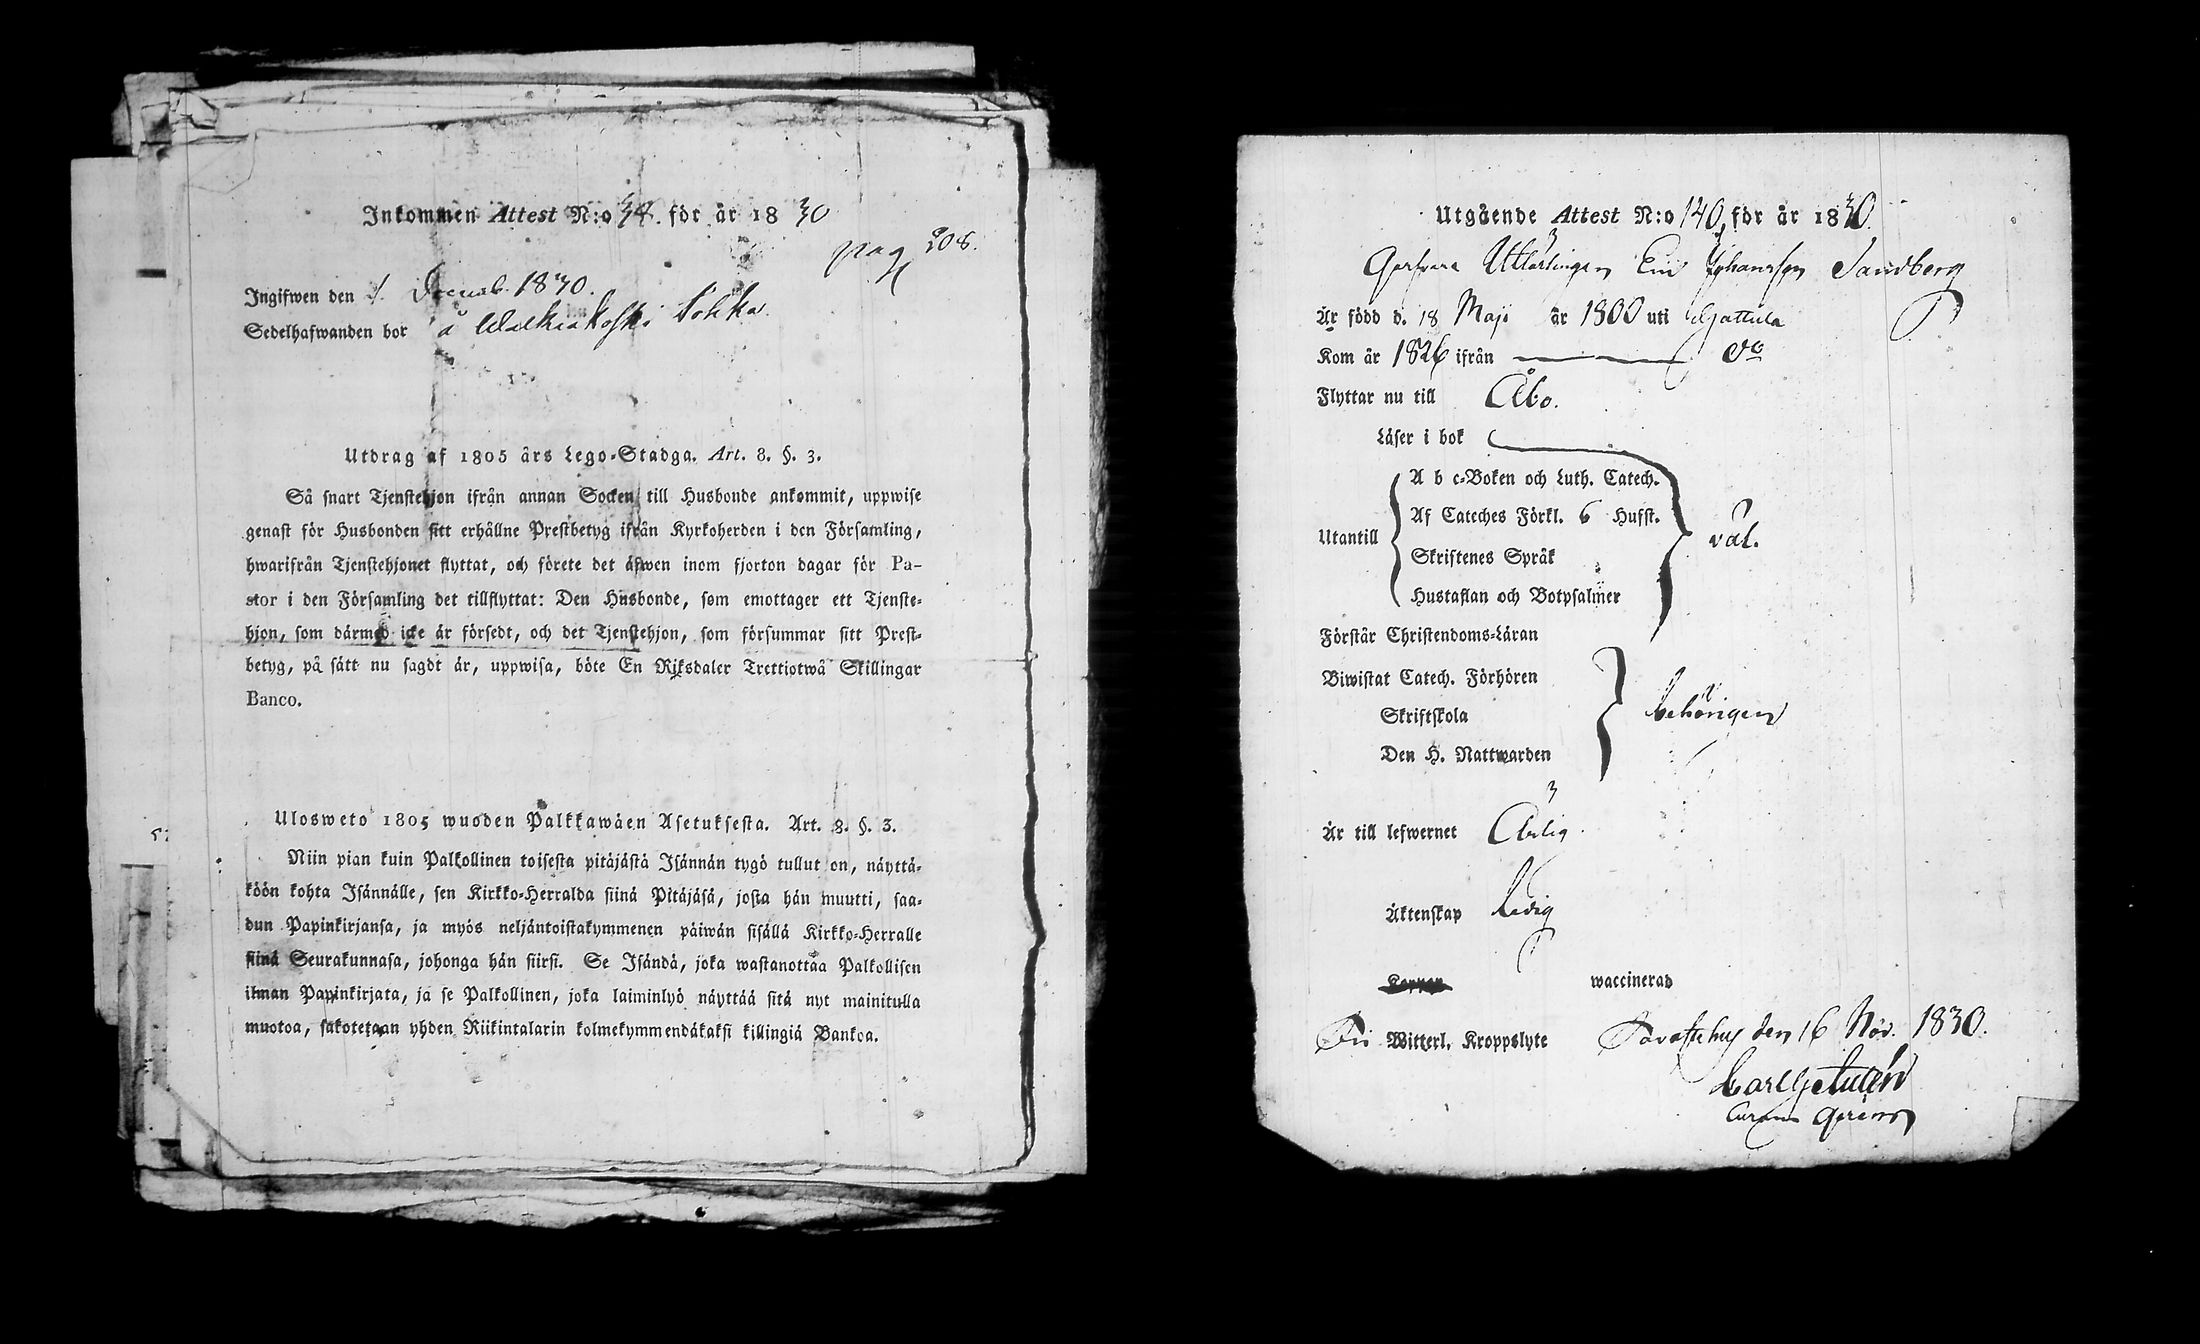 Inkommen Attest N:o 38. för år 1830
pag 208.
Ingifwen den 1. Decemb. 1830.
Sedelhafwanden bor å Walkiakoski
Utdrag af 1805 års Lego-Stadga. Art. 8. §. 3.
Så snart Tjenstehjon ifrån annan Socken till Husbonde ankommit, uppwise
genast för Husbonden sitt erhållne Prestbetyg ifrån Kyrkoherden i den Församling,
hwarifrån Tjenstehjonet flyttat, och förete det äfwen inom fjorton dagar för Pa-
stor i den Församling det tillflyttat: Den Husbonde, som emottager ett Tjenste-
hjon, som därmed icke är försedt, och det Tjenstehjon, som försummar sitt Prest-
betyg, på sätt nu sagdt är, uppwisa, böte En Riksdaler Trettiotwå Skillingar
Banco.
Ulosweto 1805 wuoden Palkkawäen Asetuksesta. Art. 8. §. 3.
Niin pian kuin Palkollinen toisesta pitäjästä Isännän tygö tullut on, näyttä-
köön kohta Isännälle, sen Kirkko-Herralda siinä Pitäjäsä, josta hän muutti, saa-
dun Papinkirjansa, ja myös neljäntoistakymmenen päiwän sisällä Kirkko-Herralle
siinä Seurakunnasa, johonga hän siirsi. Se Isändä, joka wastanottaa Palkollisen
ilman Papinkirjata, ja se Palkollinen, joka laiminlyö näyttää sitä nyt mainitulla
muotoa, sakotetaan yhden Riikintalarin kolmekymmendäkaksi killingiä Bankoa.
Utgående Attest N:o 140, för år 1830.
Johansson Sandberg
Är född d. 18 Maji år 1800 uti Hattula
Kom år 1826 ifrån do
Flyttar nu till Åbo.
Läser i bok
Utantill
A b c-Boken och Luth. Catech.
Af Cateches Förkl. 6 Hufst.
Skriftenes Språk
Hustaflan och Botpsalmer
väl.
Förstår Christendoms-Läran
Biwistat Catech. Förhören
Skriftskola
Den H. Nattwarden
behörigen
Är till lefwernet Ärlig
Äktenskap Ledig
Koppor waccinerad
Fri Witterl. Kroppslyte Tavastehus den 16 Nov. 1830.